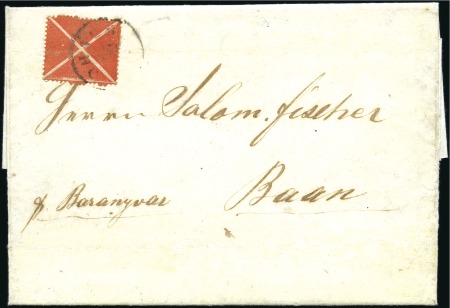 Herrn Salom. Fischer
Baan
p Baranyvar